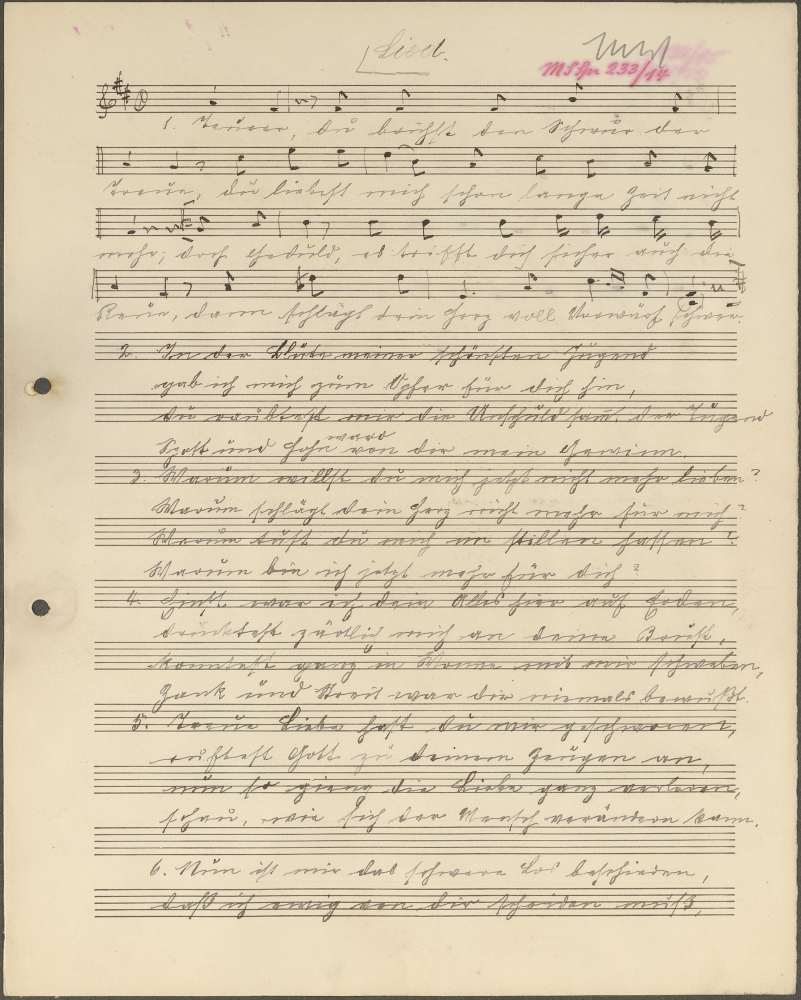 Lied.
MS Gr 233/14
1. Teurer, du brichst den Schwur der
Treue, du liebest mich schon lange Zeit nicht
mehr; doch Geduld, es trifft dich sicher auch die
Reue, dann schlägt dein Herz voll Vorwurf schwer.
2. In der Blüte meiner schönsten Jugend
gab ich mich zum Opfer für dich hin,
du raubtest mir die Unschuld samt der Tugend
Spott und Hohn ward von dir mein Gewinn.
3. Warum willst du mich jetzt nicht mehr lieben?
Warum schlägt dein Herz nicht mehr für mich?
Warum tust du mich im stillen hassen?
Warum bin ich jetzt mehr für dich?
4. Einst war ich dein Alles hier auf Erden,
drücktest zärtlich mich an deine Brust,
konntest ganz in Wonne mit mir schweben,
Zank und Streit war dir niemals bewußt.
5. Treue Liebe hast du mir geschworen,
ruftest Gott zu deinem Zeugen an,
nun so gieng die Liebe ganz verloren,
schau, wie sich der Mensch verändern kann.
6. Nun ist mir das schwere Los beschieden,
daß ich ewig von dir scheiden muß,